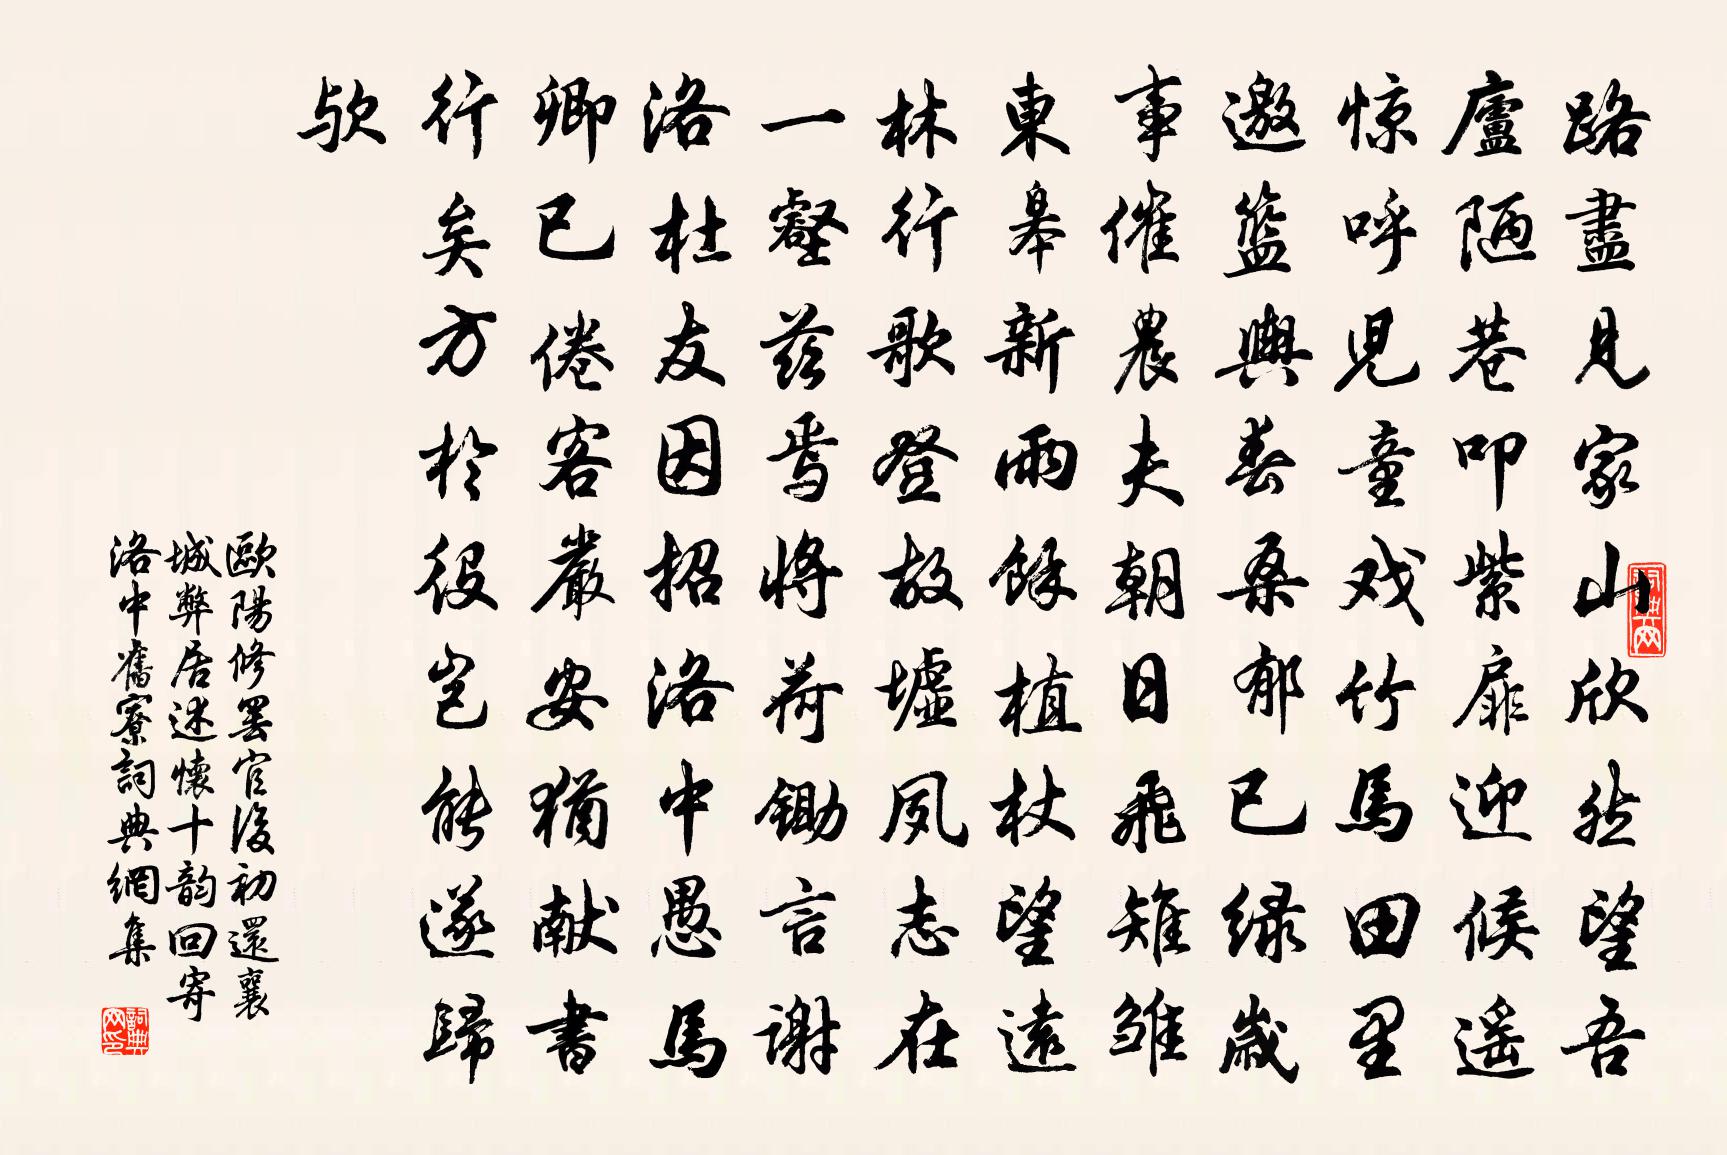 路盡見家山欣然望吾
廬陋巷叩紫扉迎候遥
惊呼児童戏竹馬田里
邀籃輿春桑郁已绿歳
事催農夫朝日飛雉雏
東皋新雨餘植杖望遠
林行歌登故墟夙志在
一壑兹焉将荷鋤言谢
洛杜友因招洛中愚馬
卿已倦客嚴安猶献書
行矣方於役豈能遂歸
欤
歐陽修罢官後初還襄
城弊居述懷十韵回寄
洛中舊寮詞典網集
詞典网
詞典网印